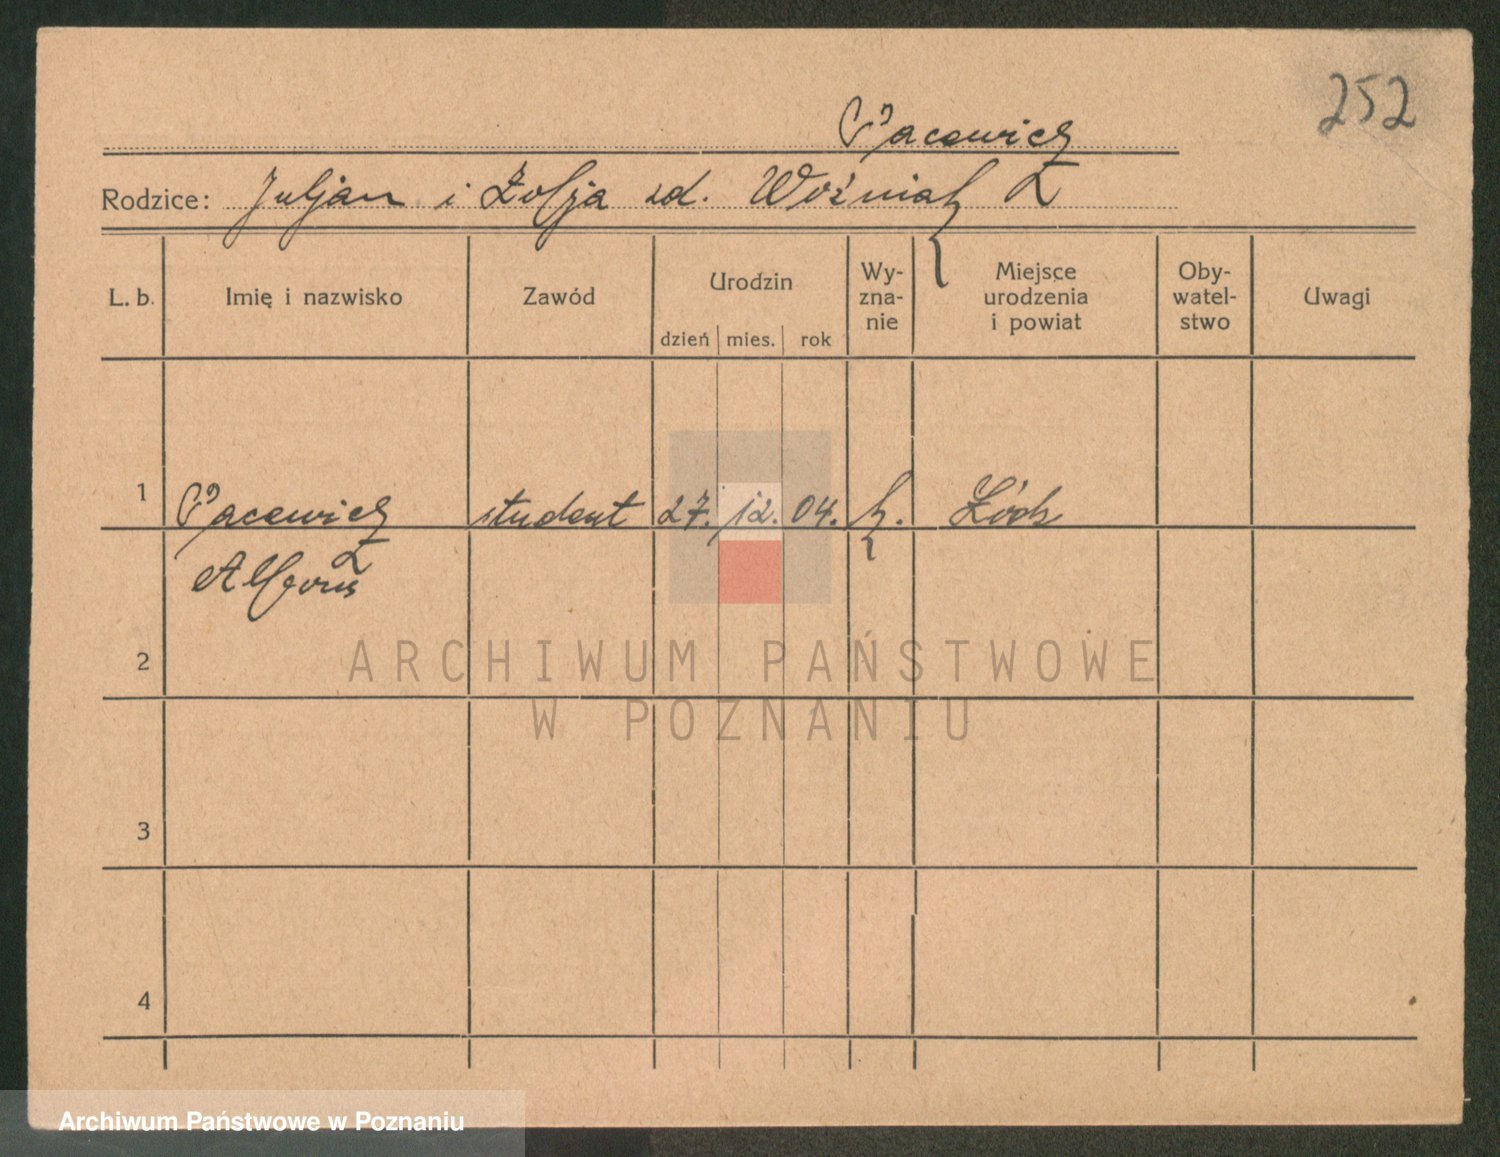 252
Pacewicz
Rodzice: Juljan i Zofja zd. Woźniak
L. b. Imię i nazwisko Zawód Urodzin Wy-zna-nie Miejsce urodzenia i powiat Oby-watel-stwo Uwagi
dzień mies. rok
1 Pacewicz student 27. 12. 04. k. Łódź
Alfons
2
3
4
ARCHIWUM PAŃSTWOWE
W POZNANIU
Archiwum Państwowe w Poznaniu